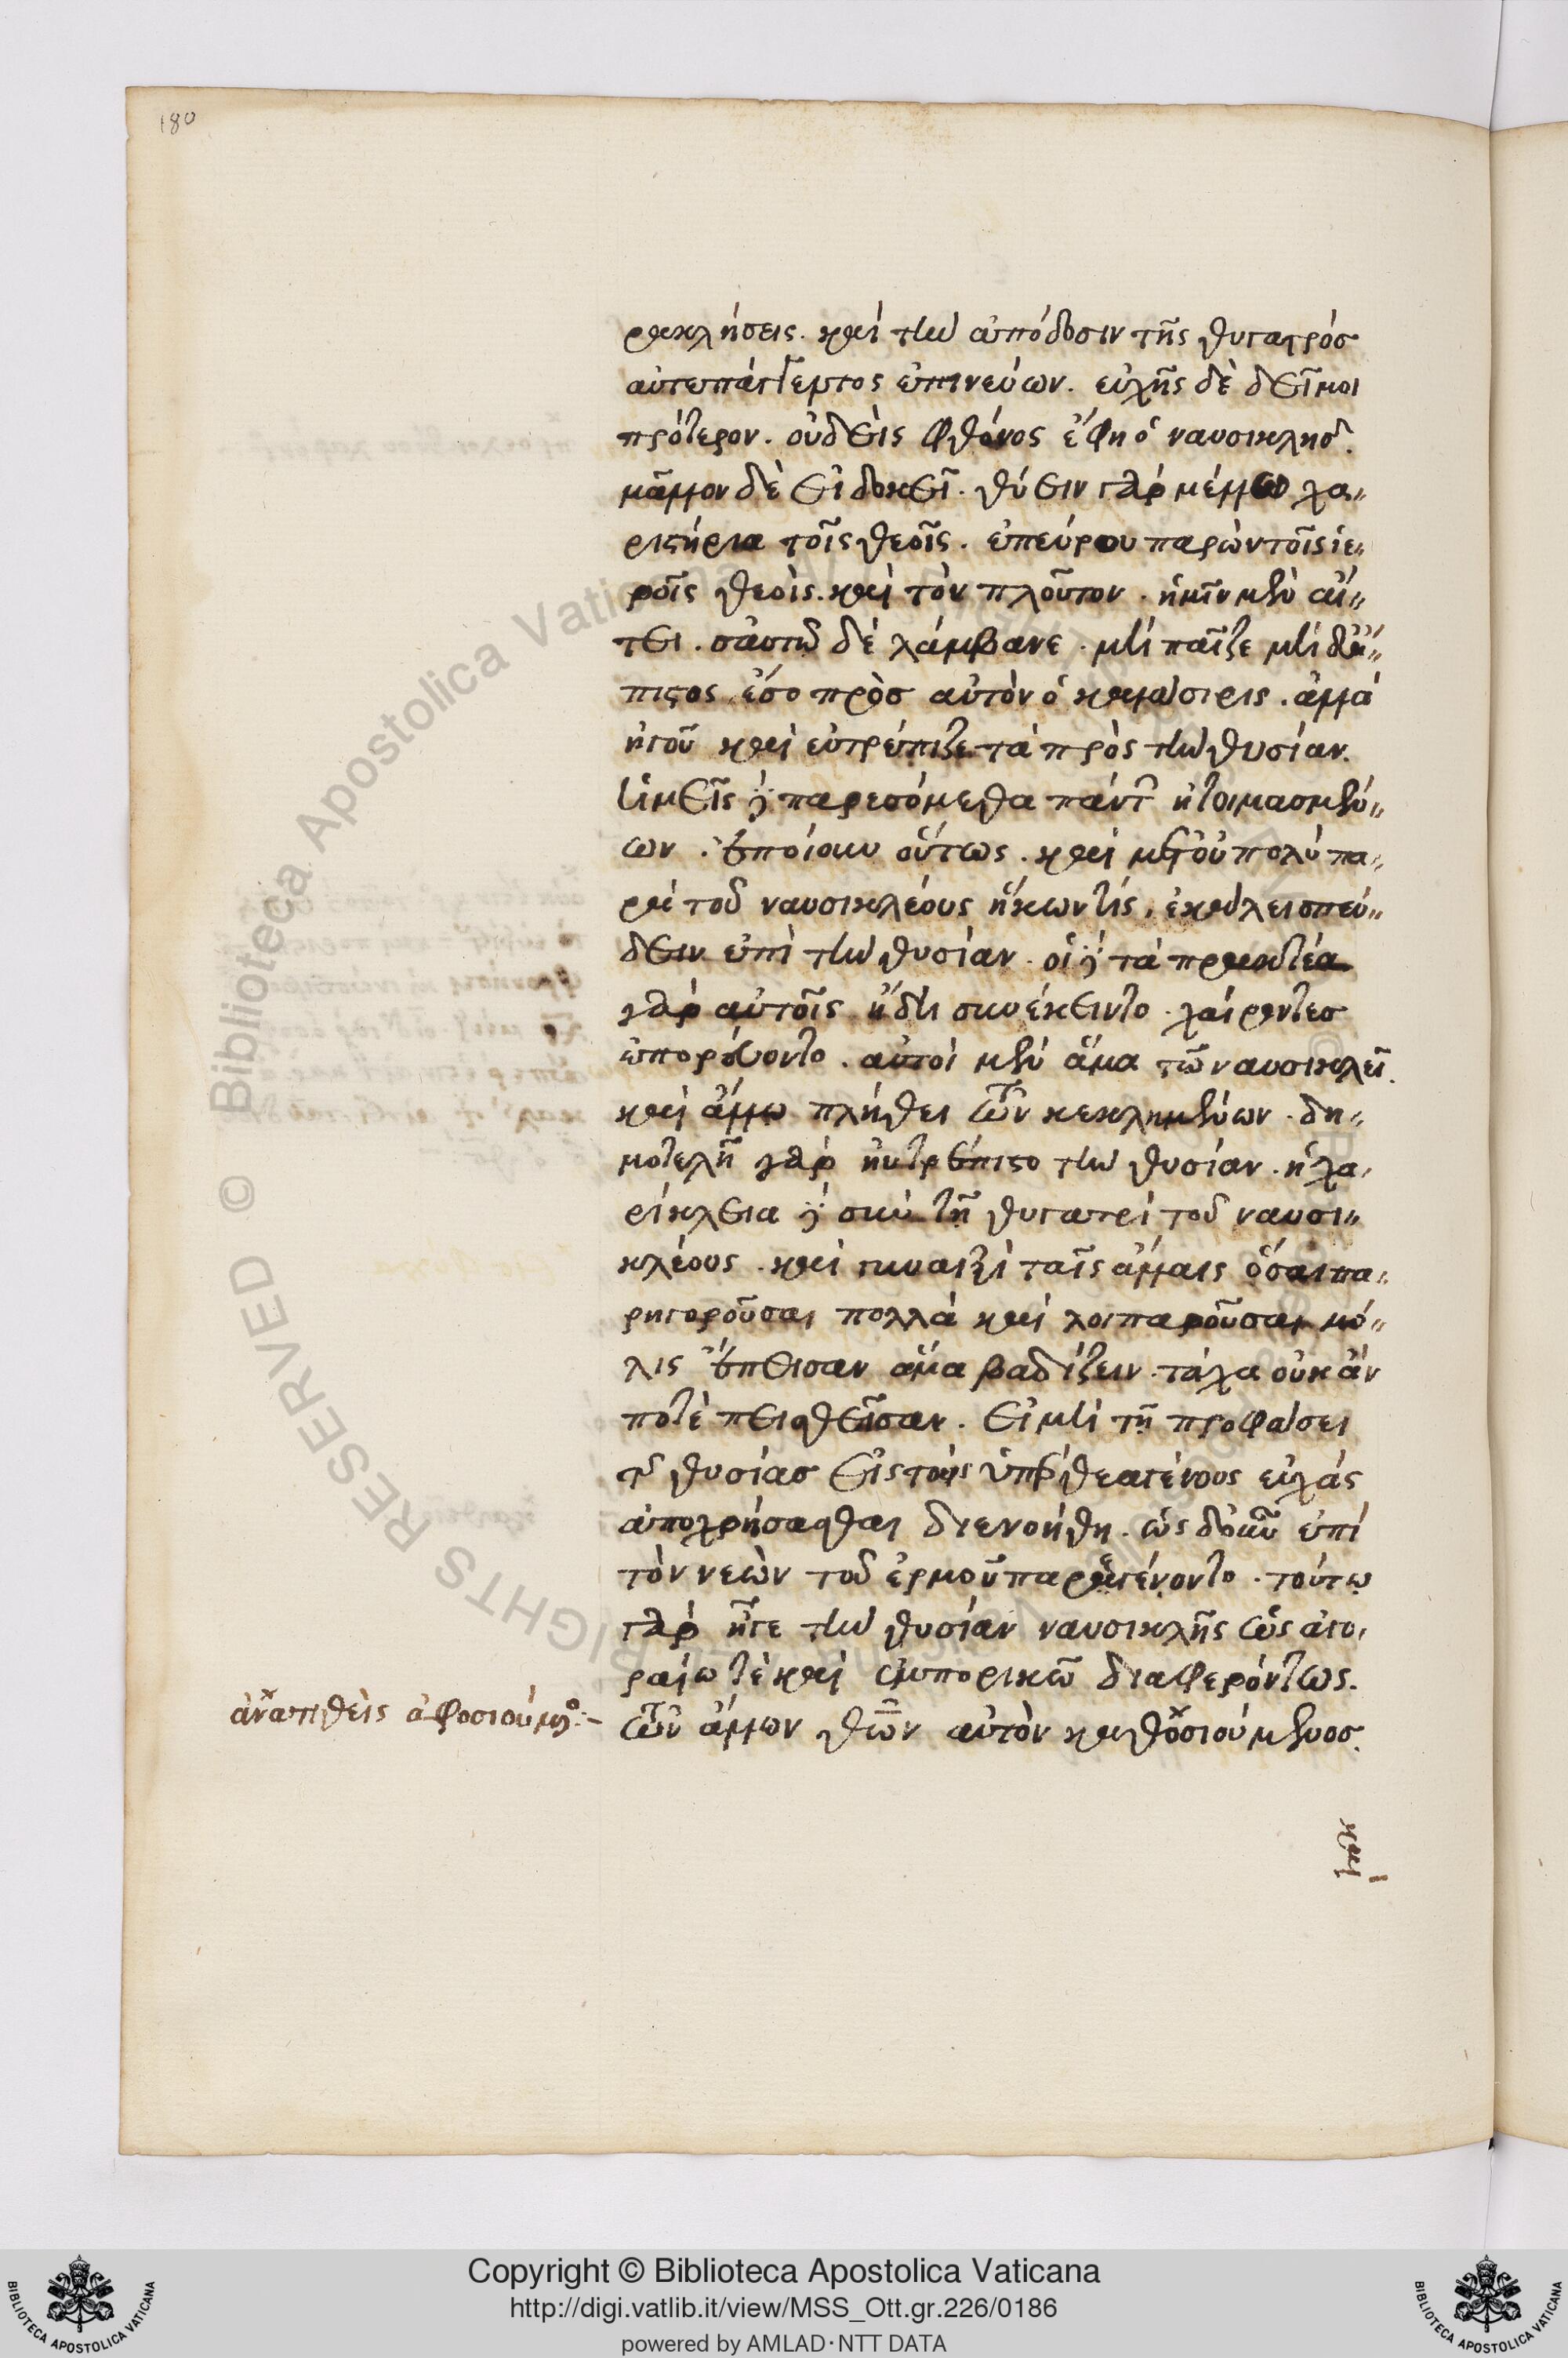 180
ρακλήσεις. καὶ τὴν ἀπόδοσιν τῆς θυγατρὸς
αὐτεπάγγελτος ἐπινεύων. εὐχῆς δὲ δεῖ μοι
πρότερον. οὐδεὶς φθόνος ἔφη ὁ ναυσικλῆς.
μᾶλλον δὲ εἰ δοκεῖ. θύειν γὰρ μέλλω χα„
ριστήρια τοῖς θεοῖς. ἐπεύχου παρὼν τοῖς ἱε„
ροῖς θεοῖς. καὶ τὸν πλοῦτον. ἡμῖν μὲν αἴ„
τει. σαυτῶ δὲ λάμβανε. μὴ παῖζε μὴ δὲ ἄ„
πιστος ἔσο πρὸσ αὐτὸν ὁ καλάσιρις. ἀλλὰ
ἡγοῦ καὶ εὐτρέπιζε τὰ πρὸς τὴν θυσίαν.
ἡμεῖς δὲ παρεσόμεθα πάντων ἡτοιμασμέν„
ων. ἐποίουν οὕτως. καὶ μετ' οὐ πολὺ πα„
ρὰ τοῦ ναυσικλέους ἥκων τίς, ἐκάλει σπεύ„
δειν ἐπὶ τὴν θυσίαν. οἱ δὲ τὰ πρακτέα
γὰρ αὐτοῖς ἤδη συνέκειντο. χαίροντεσ
ἐπορεύοντο. αὐτοὶ μὲν ἅμα τῶ ναυσικλεῖ
καὶ ἄλλω πλήθει τῶν κεκλημένων. δη„
μοτελῆ γὰρ ηὐτρέπιστο τὴν θυσίαν. ἡ χα„
ρίκλεια δὲ σὺν τῆ θυγατρὶ τοῦ ναυσι„
κλέους. καὶ γυναιξὶ ταῖς ἄλλαις ὅσαι πα„
ρηγοροῦσαι πολλὰ καὶ λοιπαροῦσαι μό„
λις ἔπεισαν ἅμα βαδίζειν. τάχα οὐκ ἄν
ποτὲ πεισθεῖσαν. εἰ μὴ τῆ προφάσει
τῆς θυσίασ εἰς τὰς ὑπὲρ θεαγένους εὐχάς
ἀποχρήσασθαι διενοήθη. ὡς δ' οὖν ἐπὶ
τὸν νεὼν τοῦ ἑρμοῦ παρεγένοντο. τούτω
γὰρ ἦγε τὴν θυσίαν ναυσικλῆς ὡς ἀγο„
ραίω τὲ καὶ ἐμπορικῶ διαφερόντως.
τῶν ἄλλων θεῶν αὐτὸν καθοσιούμενοσ.
ἀναπιθεὶς ἀφοσιούμενος:-
καὶ
Copyright © Biblioteca Apostolica Vaticana
http://digi.vatlib.it/view/MSS_Ott.gr.226/0186
powered by AMLAD·NTT DATA
BIBLIOTECA APOSTOLICA VATICANA
BIBLIOTECA APOSTOLICA VATICANA